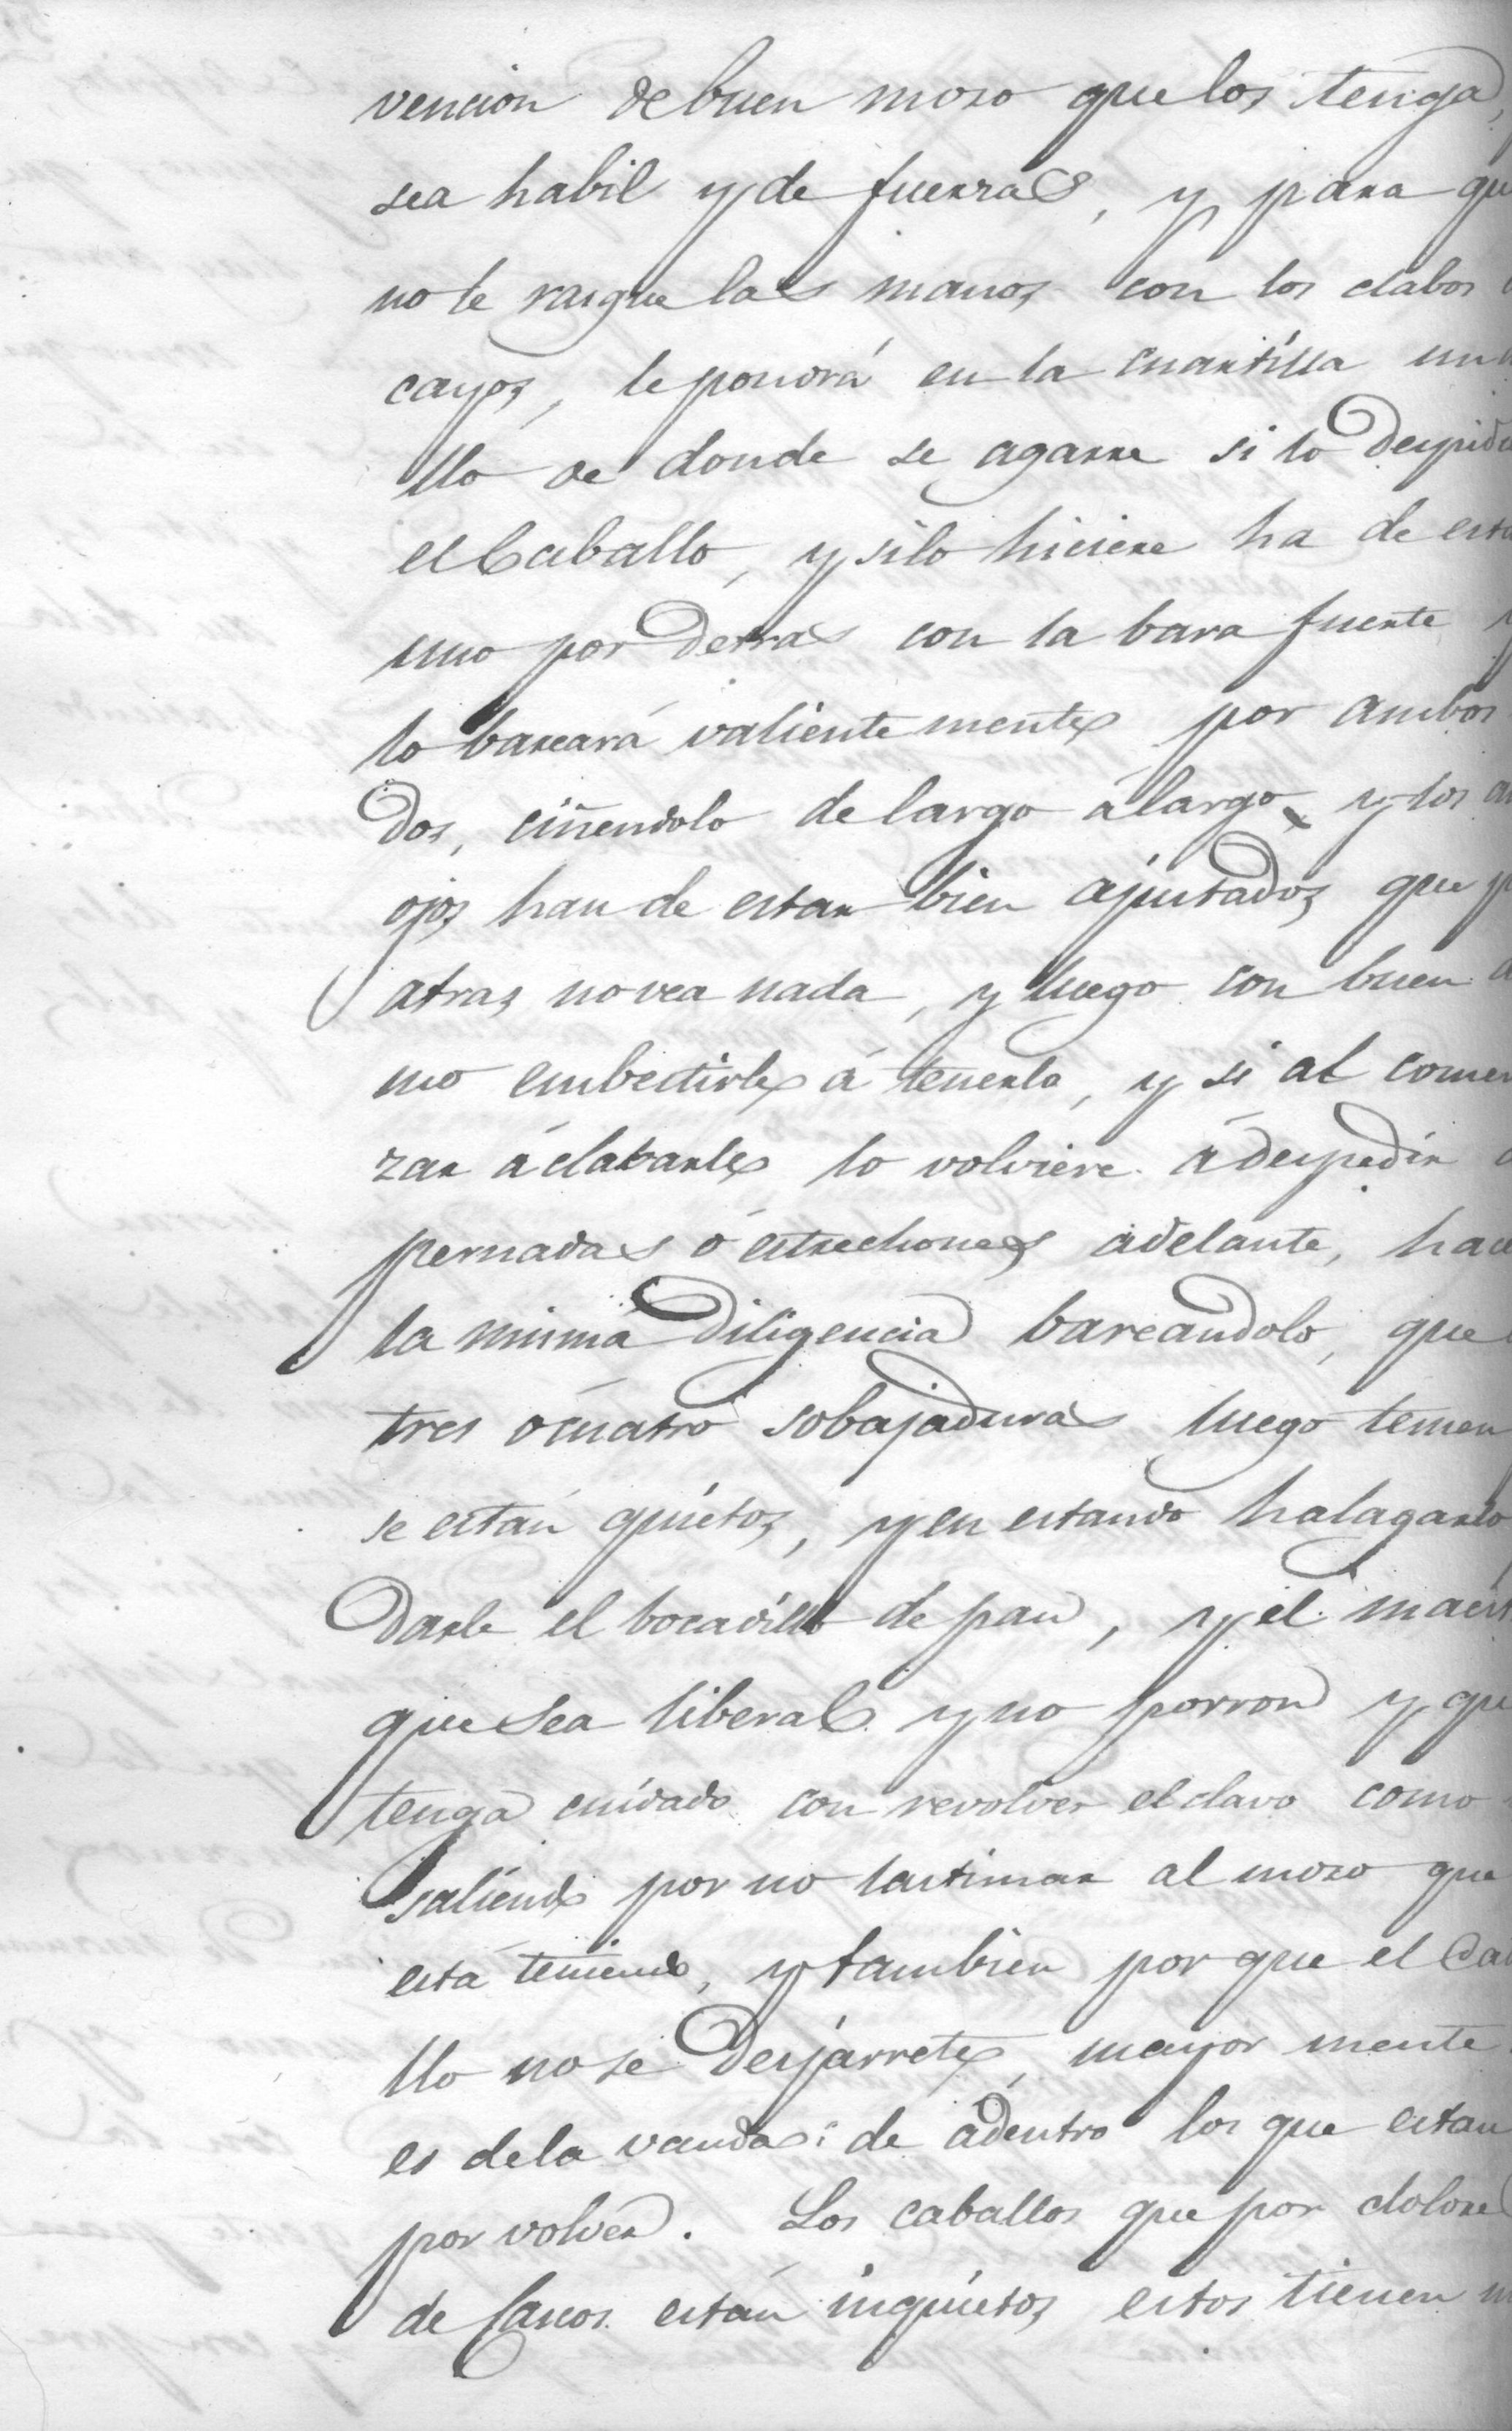 vencion de buen moso que los tenga,
sea habil y de fuerzas, y para qu
no le rasgue las manos con los clabos
cayos, le pondrá en la cuartilla un
llo de donde se agarre si lo despide
el Caballo, y si lo hiciere ha de esta
uno por detras con la bara fuerte y
lo bareará valientemente por ambos
dos, ciñendolo de largo á largo, y los an
ojos han de estar bien ajustados, que p
atras no vea nada, y luego con buen a
mo embestirle á tenerlo, y si al comen
zar á clabarle lo volviere á despedir
pernadas ó estrechones adelante, hace
la misma diligencia bareandolo, que
tres ó cuatro sobajaduras luego temen
se están quietos, y en estando halagarlo
darle el bocadillo de pan, y el maest
que sea liberal y no porron y que
tenga cuidado con revolver el clavo como
saliendo por no lastimar al moso que
está teniendo, y tambien por que el Cab
llo no se desjarrete, mayor mente
es de la vanda de adentro los que estan
por volver. Los caballos que por dolore
de Cascos están inquietos estos tienen